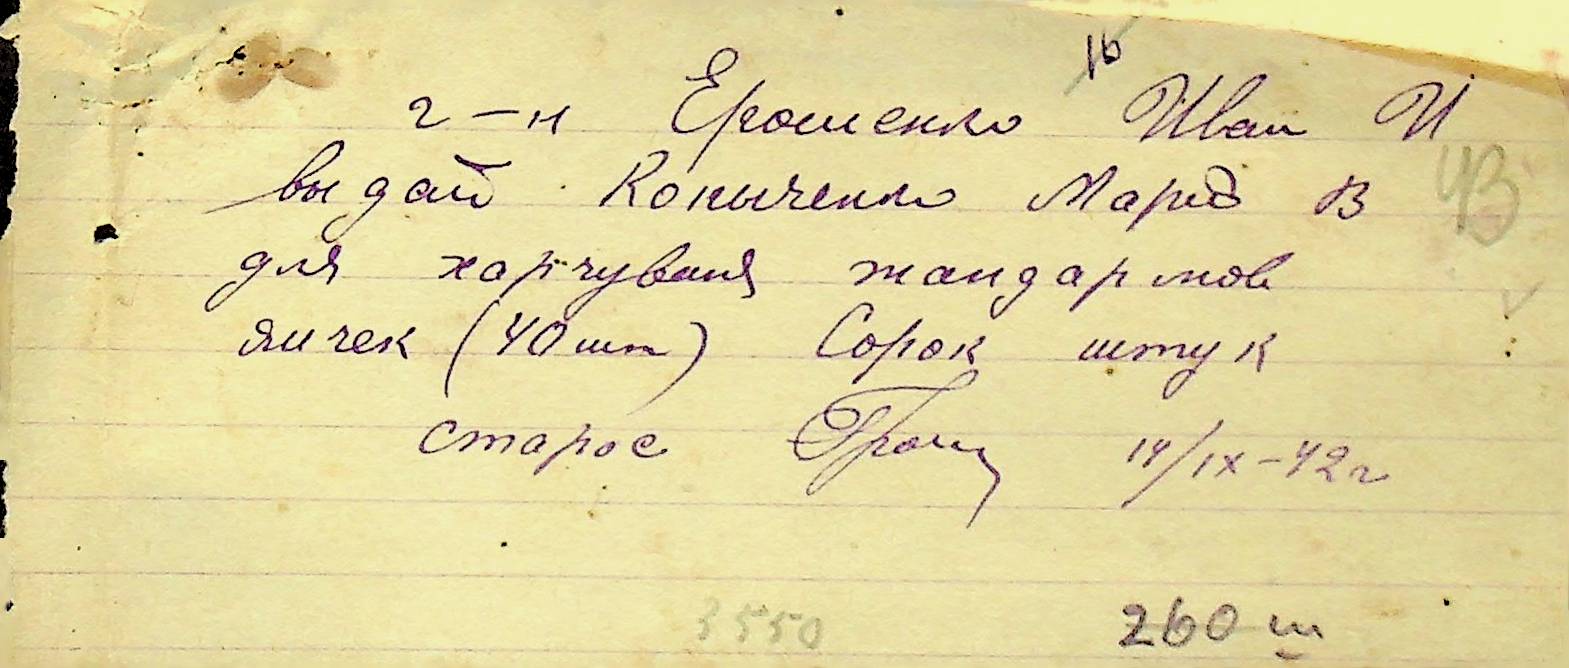 16
г-н Ерошенко Иван И
выдай Коныченко Марие В
43
для харчуваня жандармов
яичек (40 шт) Сорок штук
старос 14/IX-42 г
3550 260 ш